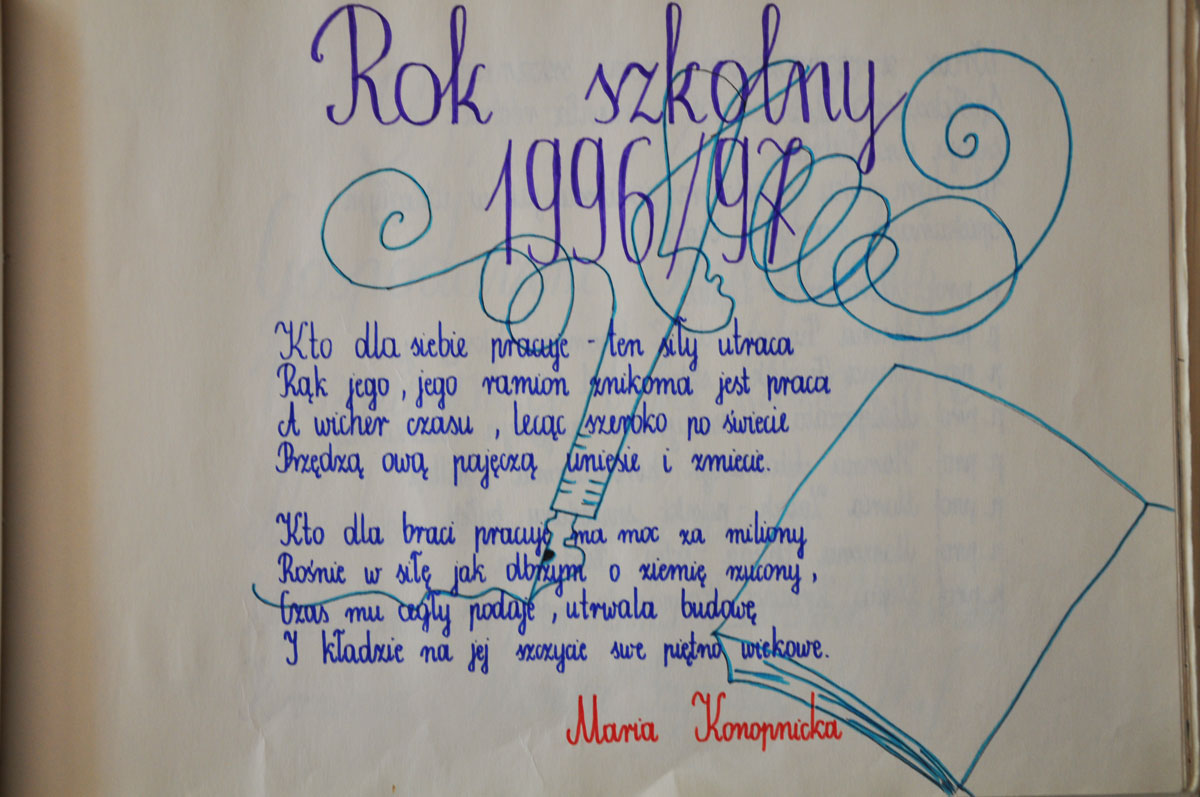 Rok szkolny
1996/97
Kto dla siebie pracuje - ten siły utraca
Rąk jego, jego ramion znikoma jest praca
A wicher czasu, lecąc szeroko po świecie
Przędzą ową pajęczą uniesie i zmiecie.
Kto dla braci pracuje ma moc za miliony
Rośnie w siłę jak olbrzym o ziemię rzucony,
Czas mu cegły podaje, utrwala budowę
I kładzie na jej szczycie swe piętno wiekowe.
Maria Konopnicka